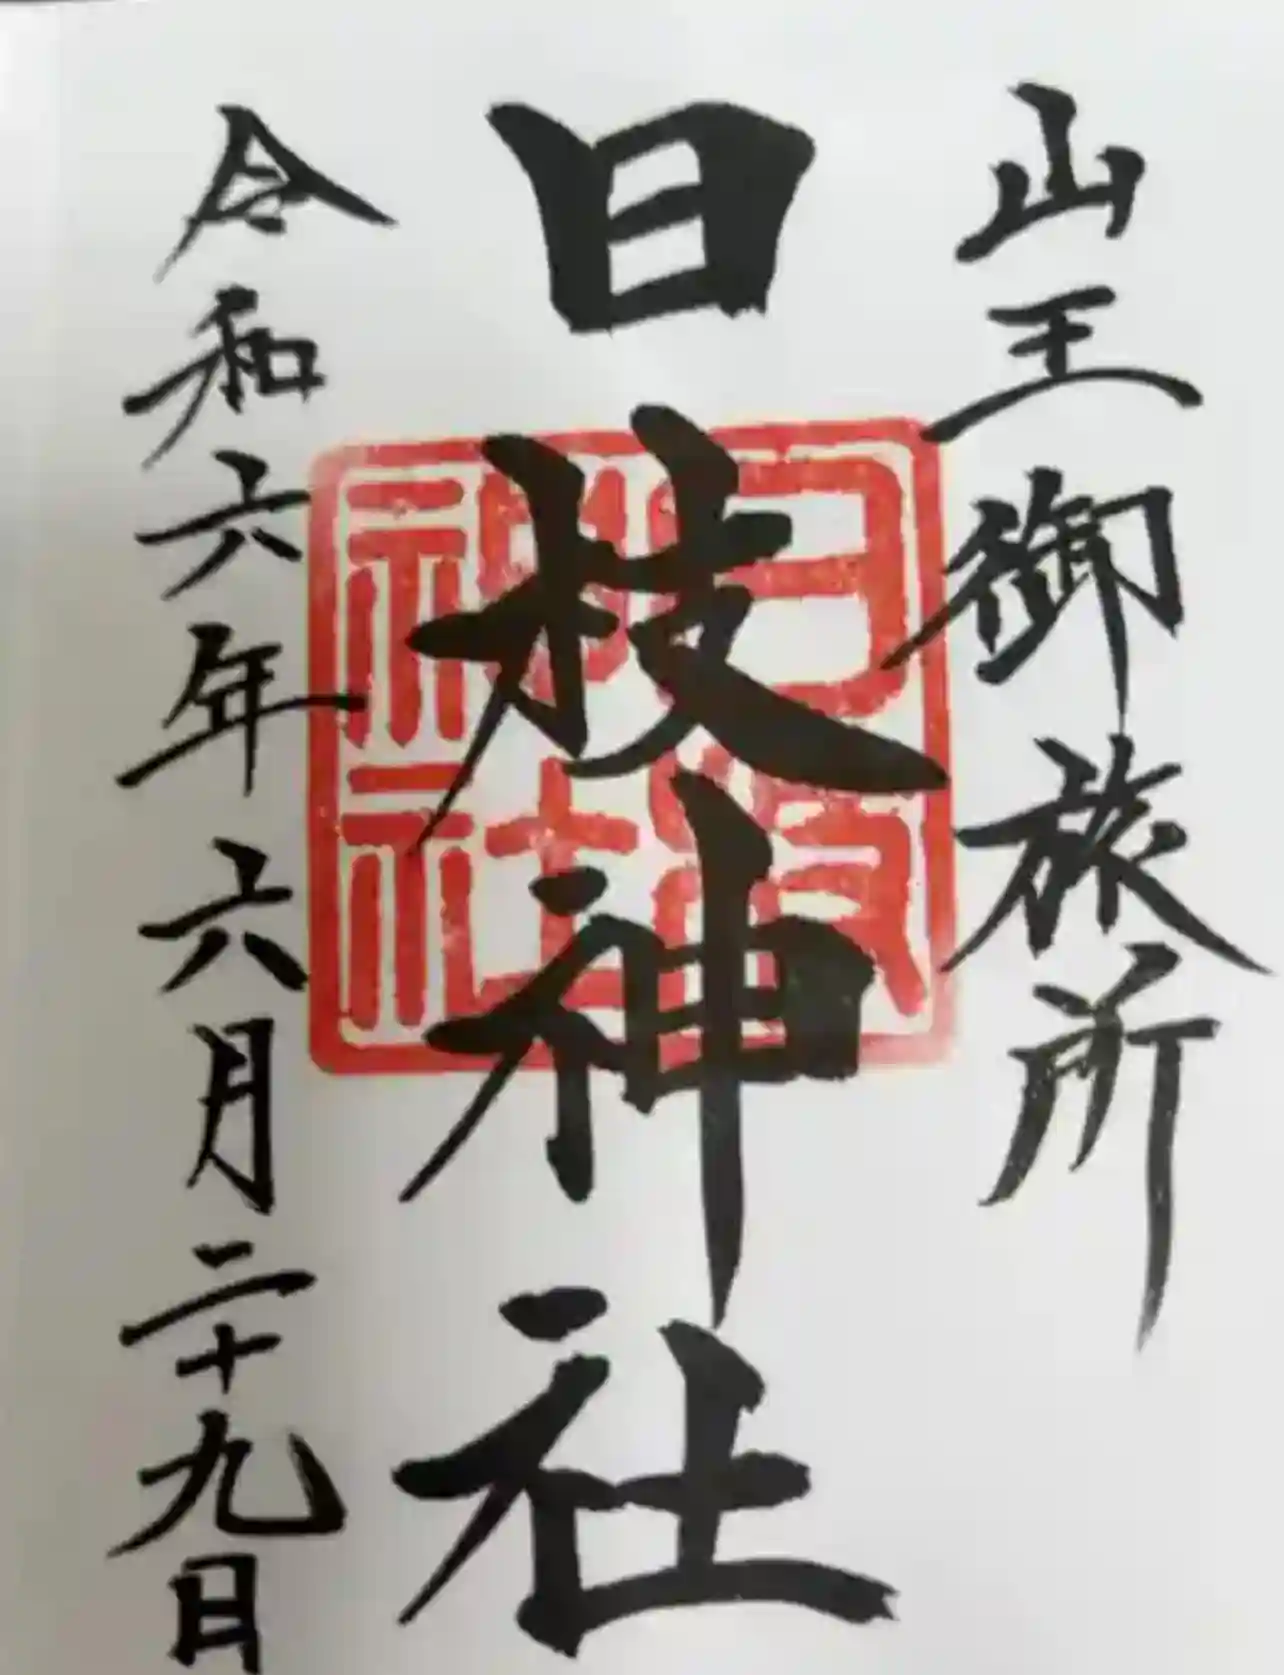 山王御旅所
日枝神社
令和六年六月二十九日
日枝神社